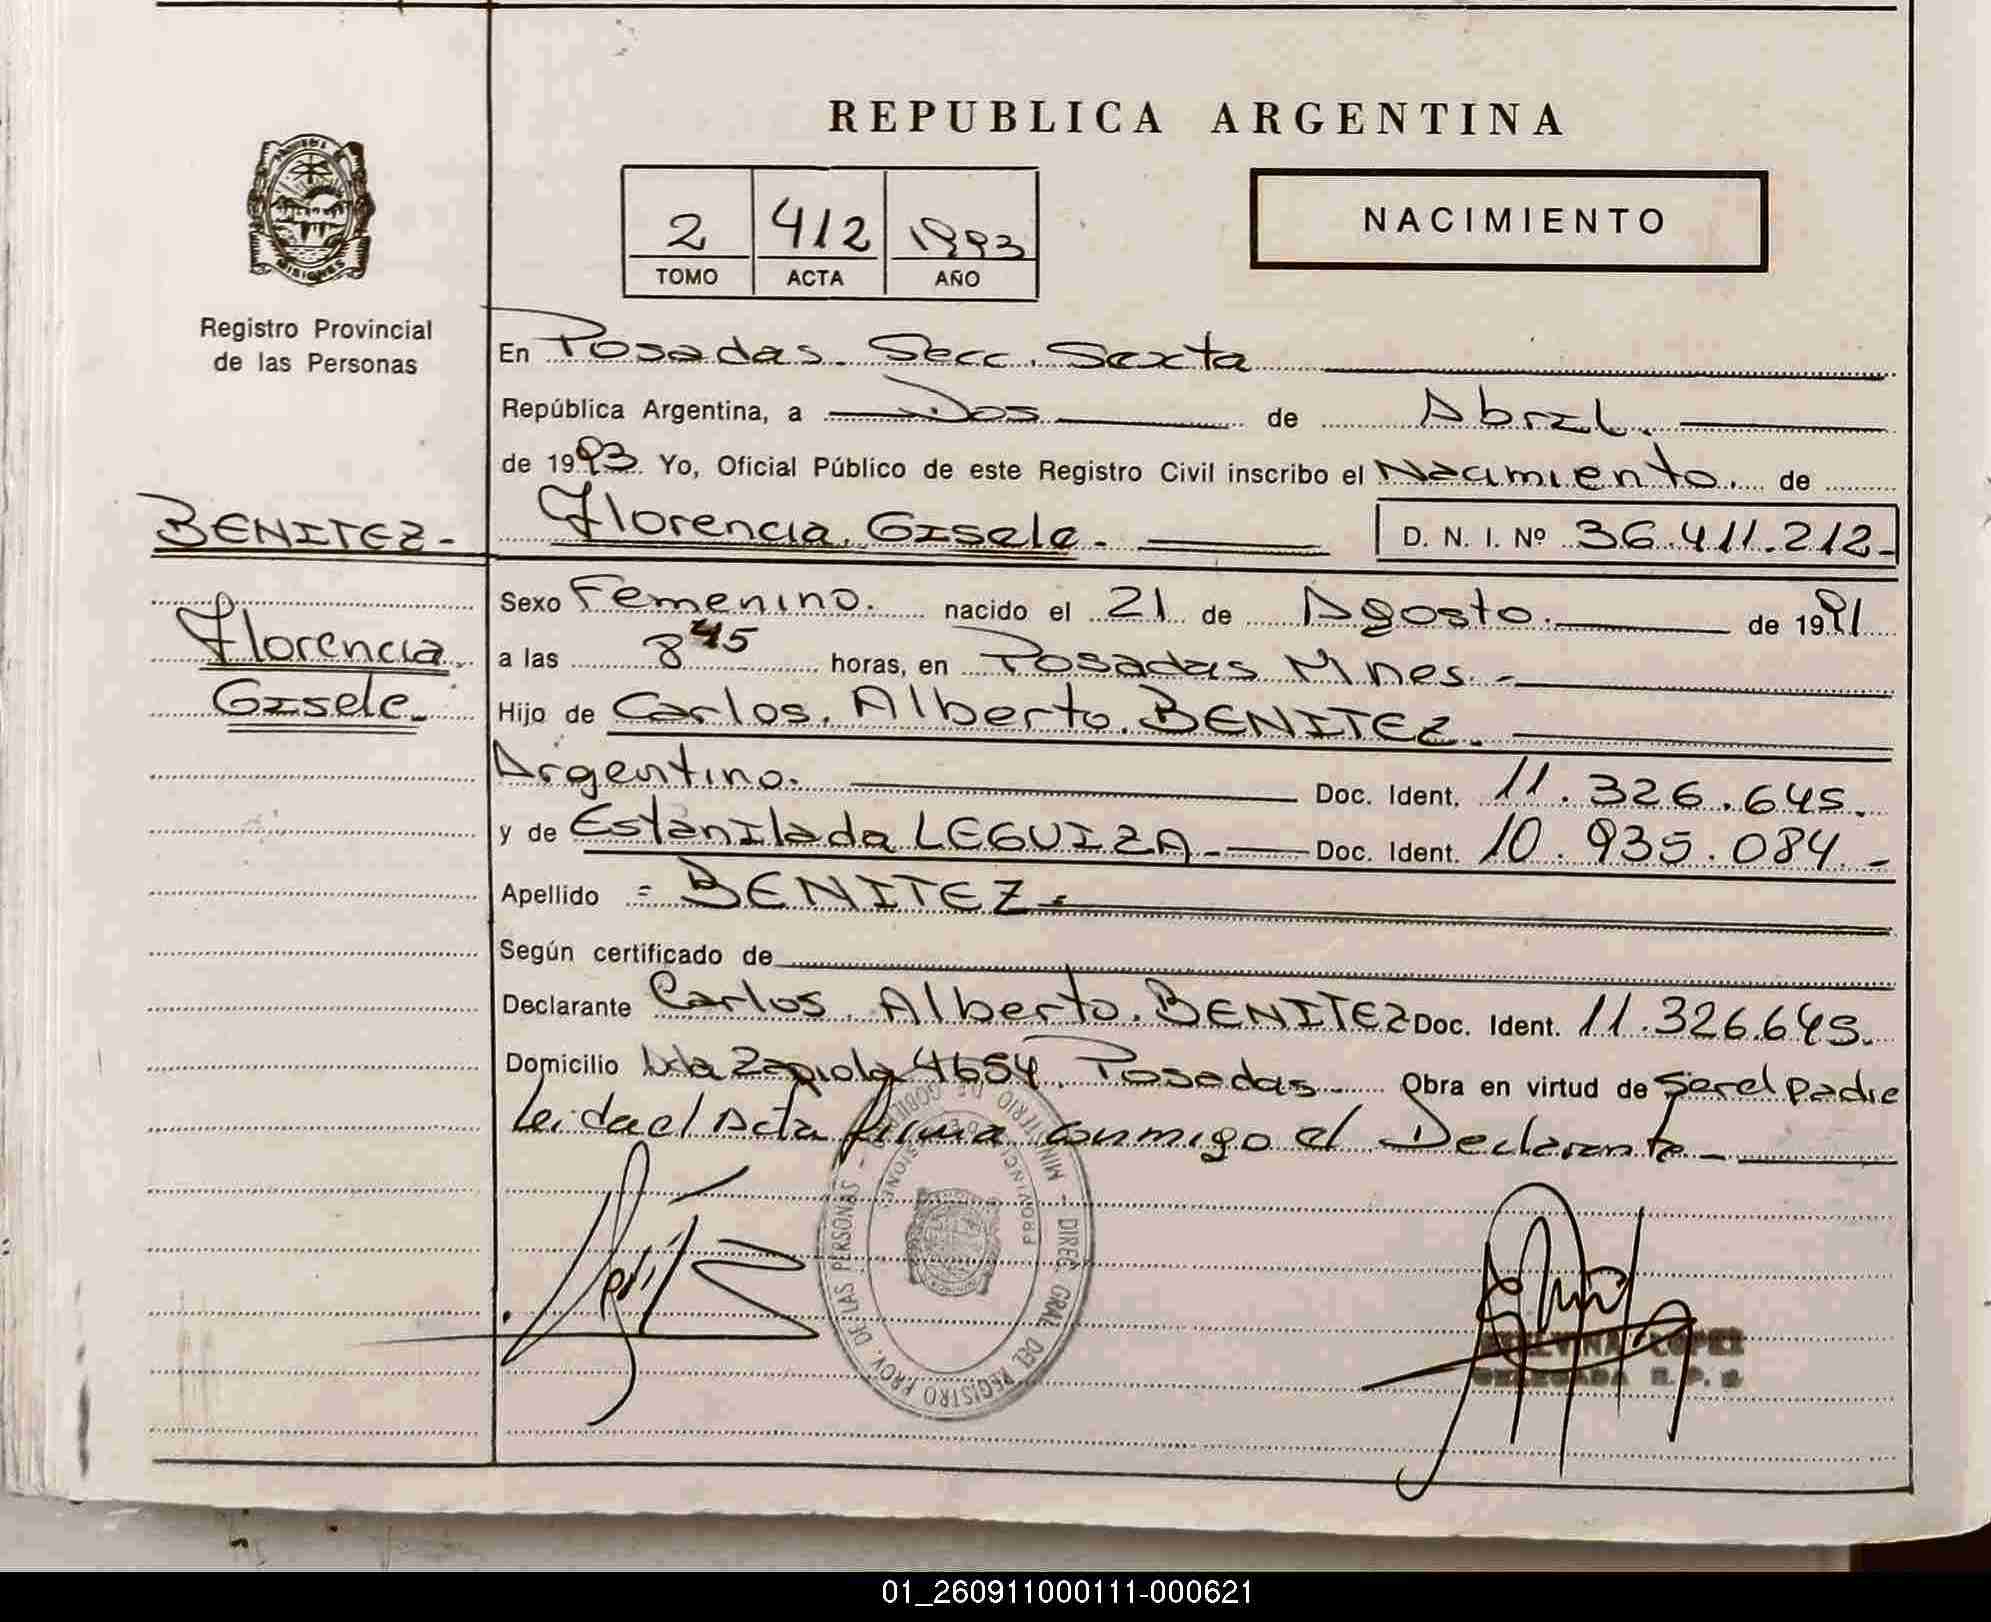 REPUBLICA ARGENTINA
MISIONES
Registro Provincial
de las Personas
2 412 1993
TOMO ACTA AÑO
NACIMIENTO
En Posadas. Secc. Sexta
República Argentina, a Dos de Abril.
de 1993. Yo, Oficial Público de este Registro Civil inscribo el Nacimiento. de
BENITEZ- Florencia. Gisele.- D. N. I. Nº 36.411.212-
Sexo Femenino. nacido el 21 de Agosto. de 1991
Florencia. a las 8 45 horas, en Posadas Mnes.-
Gisele.- Hijo de Carlos. Alberto. BENITEZ.
Argentino. Doc. Ident. 11.326.645.
y de Estanilada LEGUIZA.- Doc. Ident. 10.935.084.-
Apellido = BENITEZ=
Según certificado de
Declarante Carlos. Alberto. BENITEZ Doc. Ident. 11.326.645.
Domicilio Zapiola 4654. Posadas. Obra en virtud de ser el padre
Leida el Acta firma conmigo el Declarante-
DIREC. GRAL. DEL REGISTRO PROV. DE LAS PERSONAS - MINISTERIO DE
PROVINCIA MISIONES
LOPEZ
DELEGADA R. P.
01_260911000111-000621